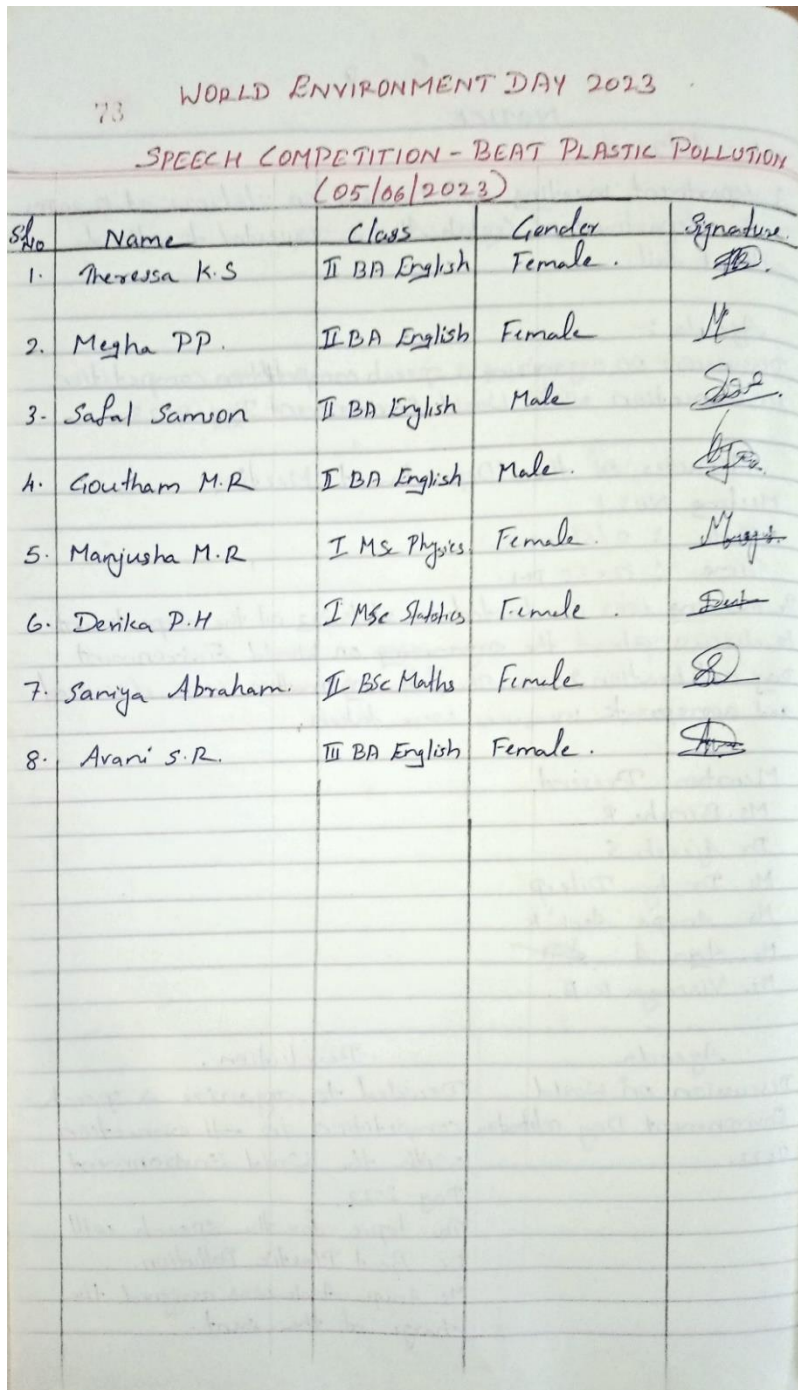 WORLD ENVIRONMENT DAY 2023
73
SPEECH COMPETITION - BEAT PLASTIC POLLUTION
(05/06/2023)
Sl No Name Class Gender Signature
1. Theressa K.S II BA English Female.
2. Megha PP. II BA English Female
3. Safal Samson II BA English Male
4. Goutham M.R II BA English Male.
5. Manjusha M.R I MSc Physics Female.
6. Devika P.H I MSc Statistics Female.
7. Saniya Abraham. II BSc Maths Female
8. Avani S.R. III BA English Female.